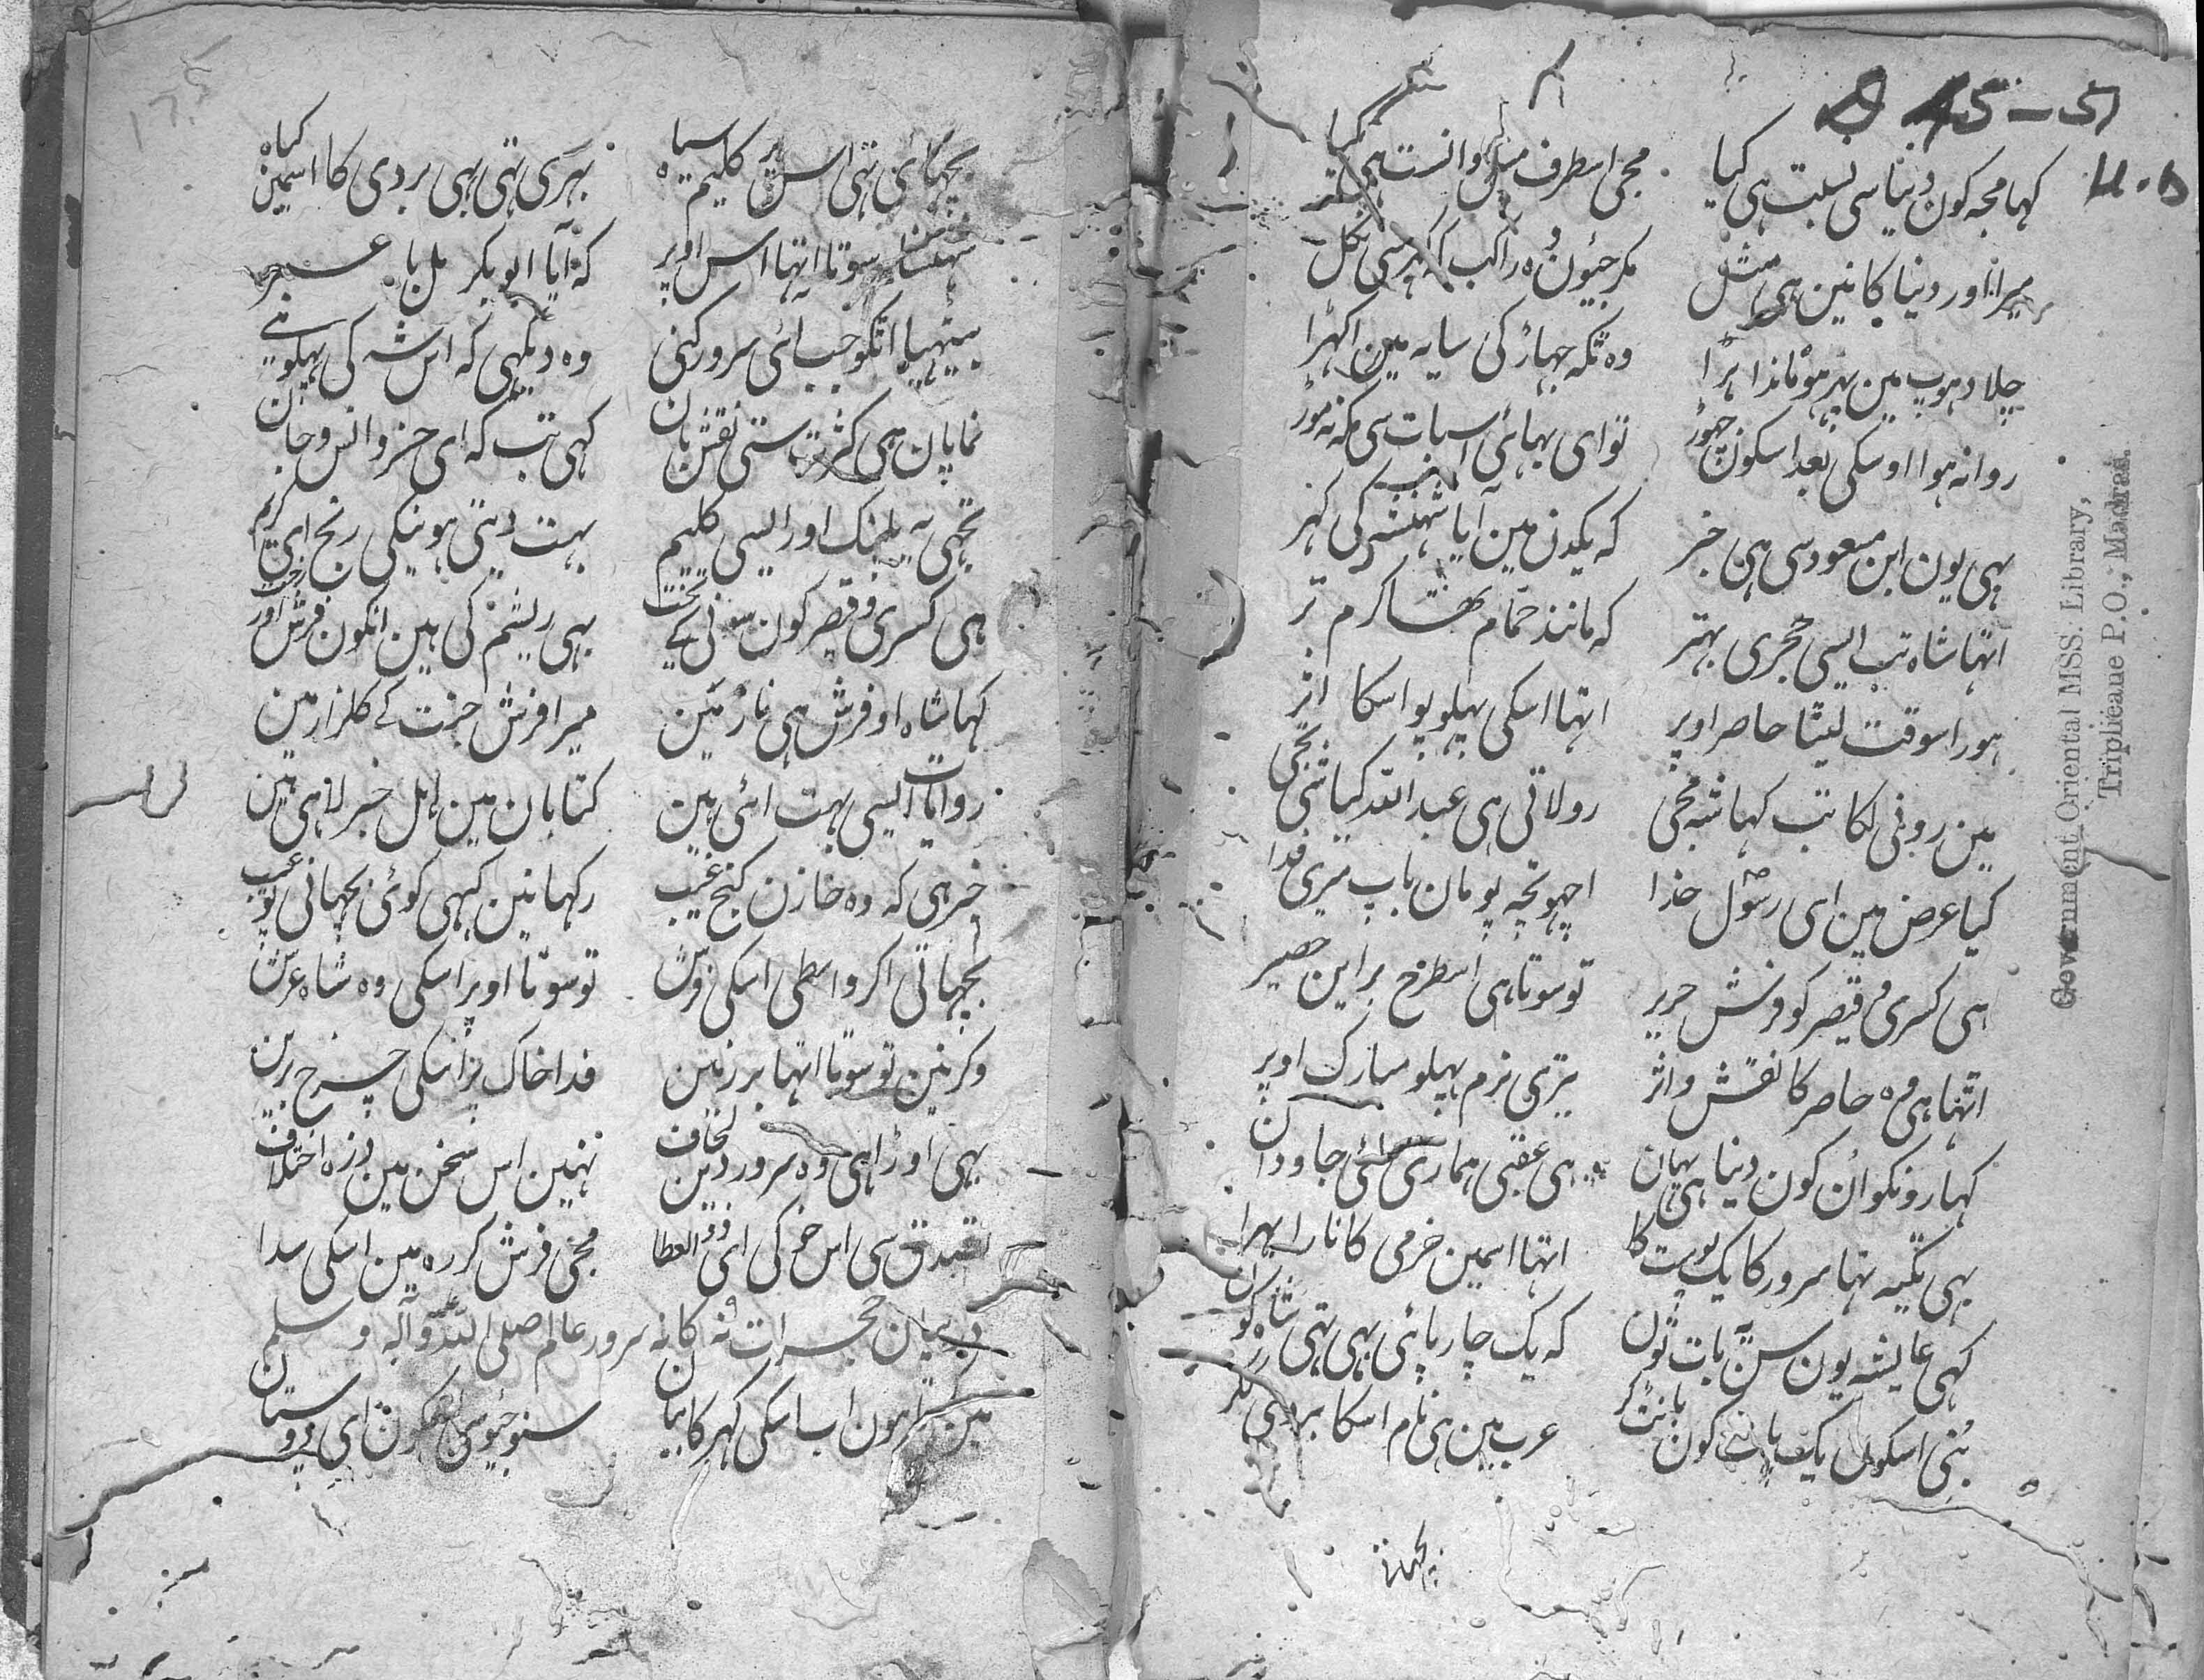 کہا مجہ کون دنیا سی نسبت ہی کیا
مجی اسطرف میل و انست ہی کیا
میرا اور دنیا کا نین ہی مثل
مکر جیون وہ راکب کہ کہر سی نکل
چلا دہوپ مین پہر ہو ماندا بڑا
وہ تکہ جہاڑ کی سایہ مین اکہڑا
روانہ ہوا اوسکی بعد اسکون چہوڑ
تو ای بہائی اس بات سی مکہ نہ موڑ
بہی یون ابن مسعود سی ہی خبر
کہ یکدن مین آیا شہنشہ کی کہر
اتہا شاہ تب ایسی حجری بہتر
کہ مانند حمام تہا کرم تر
ہور اسوقت لیٹا حاصر اوپر
اتہا اسکی پہلو پو اسکا اثر
مین رونی لکا تب کہا شہ مجی
رولاتی ہی عبد اللہ کیا شی تجی
کیا عرض مین ای رسول خدا
اچہو تجہ پو مان باپ میری فدا
ہی کسری و قیصر کو فرش حریر
تو سوتا ہی اسطرح بر این حصیر
اتہا ہی وہ حاصر کا نقش و اثر
تیری نرم پہلو مبارک اوپر
کہا رو نکو ان کون دنیا ہی یہان
ہی عقبی ہماری لئی جاودان
بہی تکیہ تہا سرور کا یک پوست کا
اتہا اسمین خرمی کا نارا بہرا
کہی عایشہ یون سن بات تون
کہ یک چار پائی بہی تہی شاہ کون
بنی اسکون یک بات کون بانٹ کر
عرب مین ہی نام اسکا بردی مکر
بچہائی
Government Oriental MSS. Library,
Triplicane P.O., Madras.
بچہائی تہی اس پر کلیم سیاہ
بہری تہی بہی بردی کا اسمین کیاہ
شہنشاہ سوتا اتہا اس اوپر
کہ آیا ابو بکر مل با عمر
بیٹہیا انکو جب ائی سرور کنی
وہ دیکہی کہ اس شہ کی پہلو منی
نمایان ہی کثرت ستی نقش بان
کہی تب کہ ای خیر و انس و جان
تجہی یہ پلنک اور ایسی کلیم
بہت دیتی ہونیکی رنج ای کریم
ہی کسری و قیصر کون سونی کے تخت
بہی ریشم کی ہین انکون فرش اور رخت
کہا شاہ او فرش ہی نار مین
میرا فرش جنت کے کلزار مین
روایات ایسی بہت ائی ہین
کتابان مین اہل خبر لائی ہین
خبر ہی کہ وہ خازن کنج غیب
رکہا نین کبہی کوئی بچہانی پو عیب
بچہاتی اکر واسطی اسکی فرش
تو سوتا اوپر اسکی وہ شاہ عرش
وکر نین تو سوتا اتہا بر زمین
فدا خاک پر اسکی چرخ برین
بہی اوڑا ہی وہ سرور دین لحاف
نہین اس سخن مین ذرہ اختلاف
تصدق سی اس خو کی ای ذو العطا
مجی فرش کر رہ مین اسکی سدا
در بیان حجرات نہ کانہ سرور عالم صلی اللہ و آلہ و سلم
مین کرتا ہون اب اسکی کہر کا بیان
سنو جیوسی ای دوستان